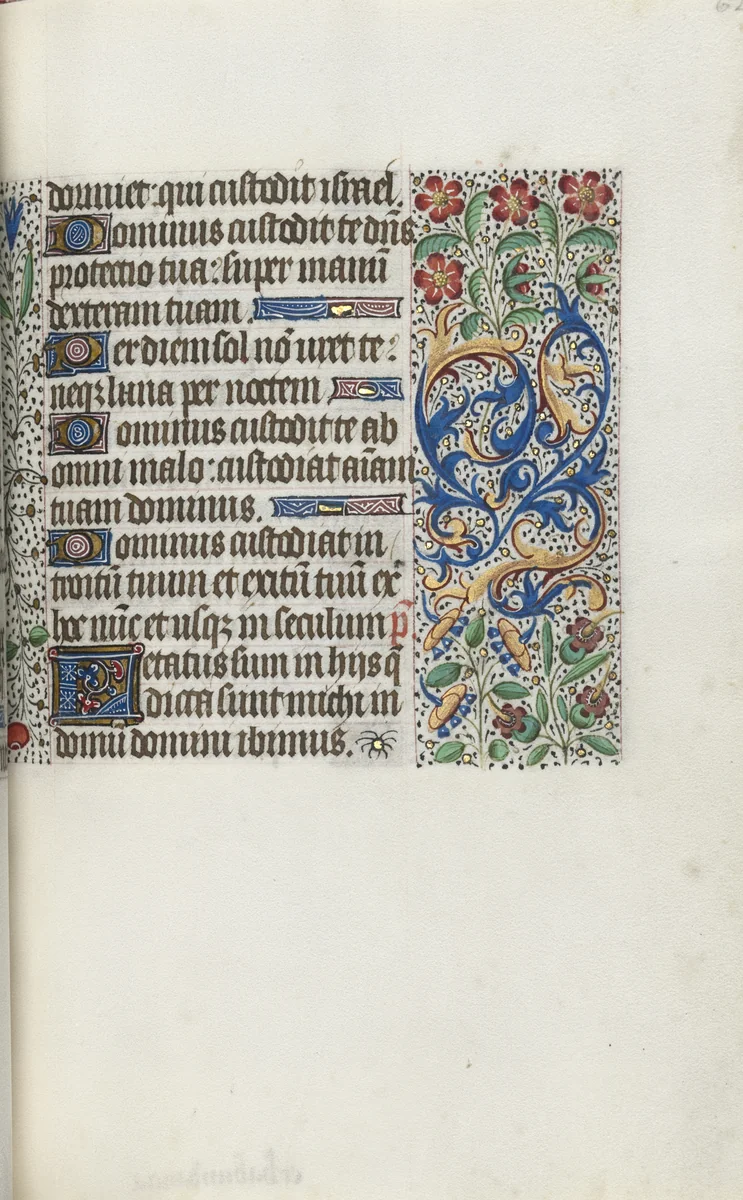 dormiet: qui custodit israel.
Dominus custodit te dñs
protectio tua: super manũ
dexteram tuam.
Per diem sol nõ uret te:
neqꝫ luna per noctem
Dominus custodit te ab
omni malo: custodiat aĩam
tuam dominus.
Dominus custodiat in
troitũ tuum et exitũ tuũ ex
hoc nũc et usqꝫ in seculum p̃.
Letatus sum in hijs q̃
dicta sunt michi in
domũ domini ibimus.